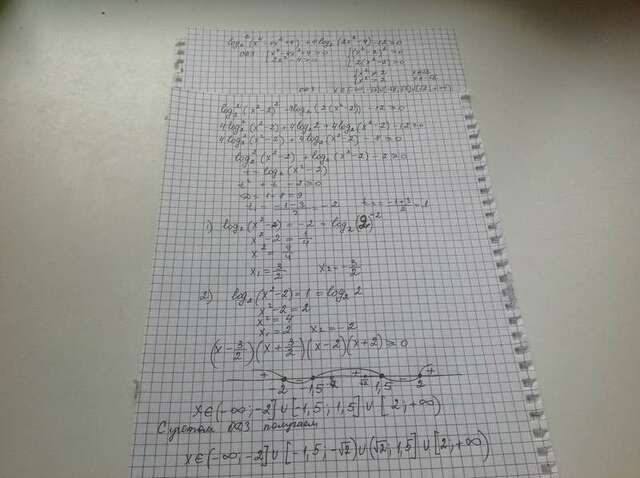 log₂²(x⁴-4x²+4)+4log₂(2x²-4)-12≥0
ОДЗ
log₂²(x²-2)²+4log₂(2(x²-2))-12≥0
4log₂²(x²-2)+4log₂2+4log₂(x²-2)-12≥0
4log₂²(x²-2)+4log₂(x²-2)-8≥0
log₂²(x²-2)+log₂(x²-2)-2≥0
t=log₂(x²-2)
t²+t-2≥0
D=1+8=9
t₁=(-1-3)/2=-2 t₂=(-1+3)/2=1
1) log₂(x²-2)=-2=log₂(2)⁻²
x²-2=1/4
x²=9/4
x₁=3/2 x₂=-3/2
2) log₂(x²-2)=1=log₂2
x²-2=2
x²=4
x₁=2 x₂=-2
(x-3/2)(x+3/2)(x-2)(x+2)≥0
+ - + - +
-2 -1,5 -√2 √2 1,5 2
x∈(-∞;-2]∪[-1,5;1,5]∪[2;+∞)
С учетом ОДЗ получаем
x∈(-∞;-2]∪[-1,5;-√2)∪(√2;1,5]∪[2;+∞)